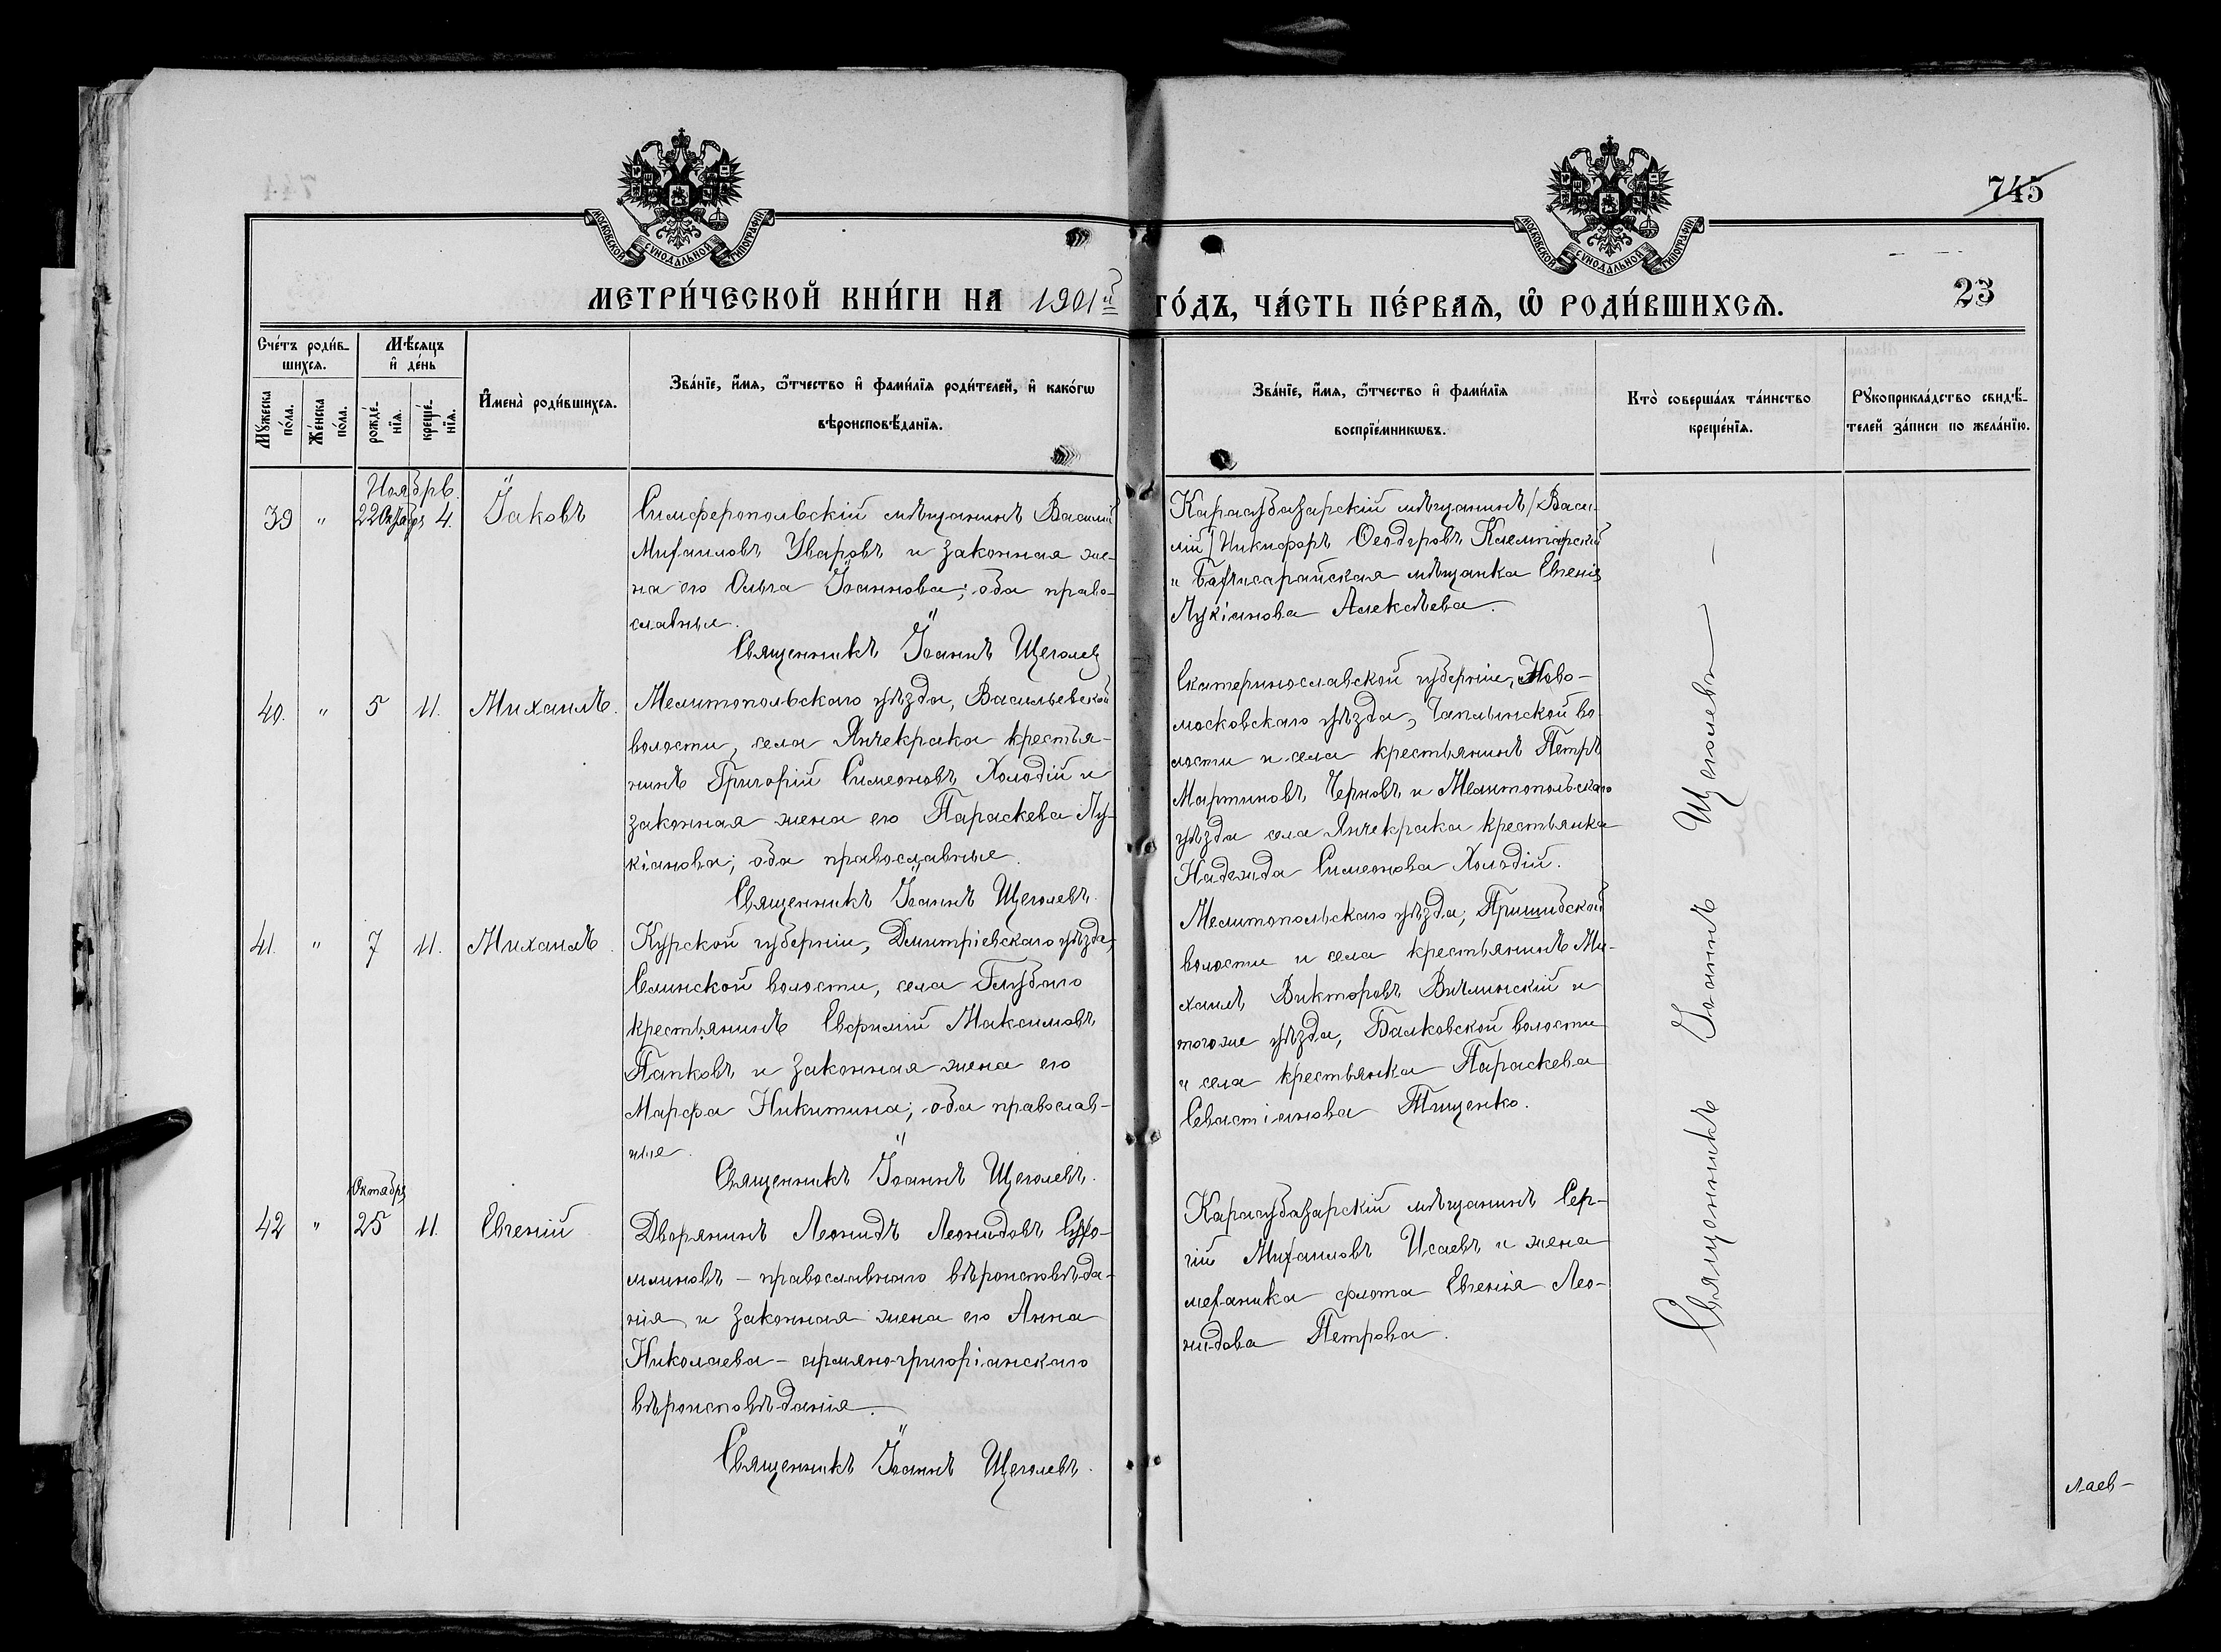 745
МОСКОВСКОЙ СѴНОДАЛЬНОЙ ТИПОГРАФІИ
МОСКОВСКОЙ СѴНОДАЛЬНОЙ ТИПОГРАФІИ
МЕТРИ́ЧЕСКОЙ КНИ́ГИ НА 1901й ГО́ДЪ, ЧА́СТЬ ПЕ́РВАѦ, Ѽ РОДИ́ВШИХСѦ.
23
Сче́тъ роди́в-
шихсѧ.
Мꙋ́жеска
по́ла.
Же́нска
по́ла.
Мѣ́сѧцъ
и҆ де́нь
рожде́-
нїѧ.
креще́-
нїѧ.
И҆мена̀ роди́вшихсѧ.
Зва́нїе, и҆́мѧ, ѿтчество и҆ фами́лїѧ роди́телей, и҆ како́гѡ
вѣроисповѣ́данїѧ.
Зва́нїе, и҆́мѧ, ѿтчество и҆ фами́лїѧ
воспрїе́мникѡвъ.
Кто̀ соверша́лъ та́инство
креще́нїѧ.
Рꙋкоприкла́дство свидѣ́-
телей за́писи по жела́нїю.
Ноябрь.
39 " 22 Октября 4. Іаковъ
Симферопольскій мѣщанинъ Василій
Михаиловъ Уваровъ и законная же-
на его Ольга Іоаннова; оба право-
славные.
Священникъ Іоаннъ Щеголев
Карасубазарскій мѣщанинъ /Васи-
лій/ Никифоръ Ѳеодоровъ
и Бахчисарайская мѣщанка Евгенія
Лукіанова Алексѣева.
40. " 5 11. Михаилъ.
Мелитопольскаго уѣзда, Васильевской
волости, села Янчекрака крестья-
нинъ Григорій Симеоновъ Холодій и
законная жена его Параскева Лу-
кіанова; оба православные.
Священникъ Іоаннъ Щеголевъ.
Екатеринославской губерніи, Ново-
московскаго уѣзда, Чаплинской во-
лости и села крестьянинъ Петръ
Мартиновъ Черновъ и Мелитопольскаго
уѣзда села Янчекрака крестьянка
Надежда Симеонова Холодій.
41. " 7 11. Михаилъ.
Курской губерніи, Дмитріевскаго уѣзда,
Селинской волости, села Глубаго
крестьянинъ Евфимій Максимовъ
Папковъ и законная жена его
Марфа Никитина; оба православ-
ные.
Священникъ Іоаннъ Щеголевъ.
Мелитопольскаго уѣзда, Пришибской
волости и села крестьянинъ Ми-
хаилъ Викторовъ Вичлинскій и
того же уѣзда, Балковской волости
и села крестьянка Параскева
Севастіанова Тищенко.
Октября
42 " 25 11. Евгеній
Дворянинъ Леонидъ Леонидовъ Сухо-
млиновъ – православнаго вѣроисповѣда-
нія и законная жена его Анна
Николаева – армяно-григоріанскаго
вѣроисповѣданія.
Священникъ Іоаннъ Щеголевъ.
Карасубазарскій мѣщанинъ Сер-
гій Михаиловъ Исаевъ и жена
механика флота Евгенія Лео-
нидова Петрова.
Священникъ Іоаннъ Щеголевъ
лаев-